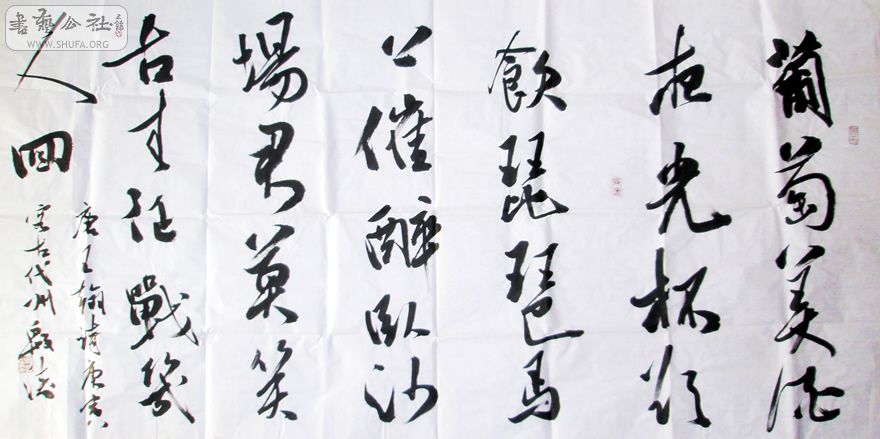 葡萄美酒
夜光杯欲
飲琵琶馬
上催醉臥沙
場君莫笑
古來征戰幾
人回
唐王翰詩庚寅
客古代州
書藝公社
WWW.SHUFA.ORG